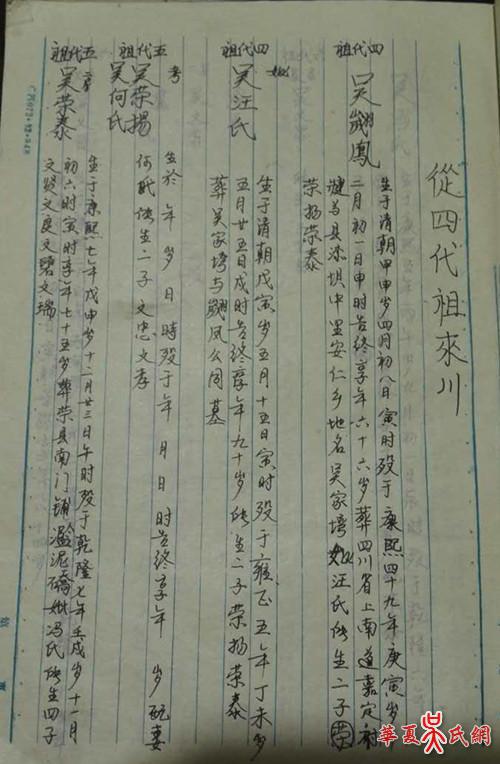 從四代祖來川
四代祖
吴翽鳳
生于清朝甲申岁四月初八日寅时殁于康熙四十九年庚寅岁
二月初一日申时告终享年六十六岁葬四川省上南道嘉定府
犍为县漆埧中里安仁乡地名吴家塆妣汪氏所生二子荣
荣扬荣泰
四代祖妣
吴汪氏
生于清朝戊寅岁五月十五日寅时殁于雍正五年丁未岁
五月廿五日戌时告终享年九十岁所生二子荣扬荣泰
葬吴家塆与翽凤公同墓
五代祖考
吴荣揚
吴何氏
生於 年 岁 日 時殁于 年 月 日 时告终享年 岁配妻
何氏所生二子文忠文孝
五代祖考
吴荣泰
生于康熙七年戊申岁十二月廿三日午时殁于乾隆七年壬戌岁十一月
初六时寅时享年七十五岁葬荣县南门铺滥泥碥妣冯氏所生四子
文贤文庭文碧文瑞
華夏吴氏網